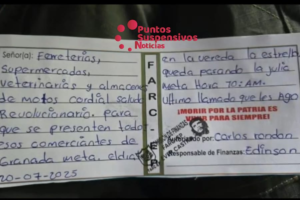 Puntos
Suspensivos
Noticias
Señor(a): Ferreterias,
Supermercados,
Veterinarias y almacenes
de motos cordial saludo
Revolucionario, para
que se presenten todos
esos comerciantes de
Granada meta, el dia
20-07-2025
FARC-EP
en la vereda la estrella
queda parando la julia
meta Hora 7:02: AM.
Ultimo llamado que les Ago
¡MORIR POR LA PATRIA ES
VIVIR PARA SIEMPRE!
Carlos rondon
Responsable de Finanzas Edinson